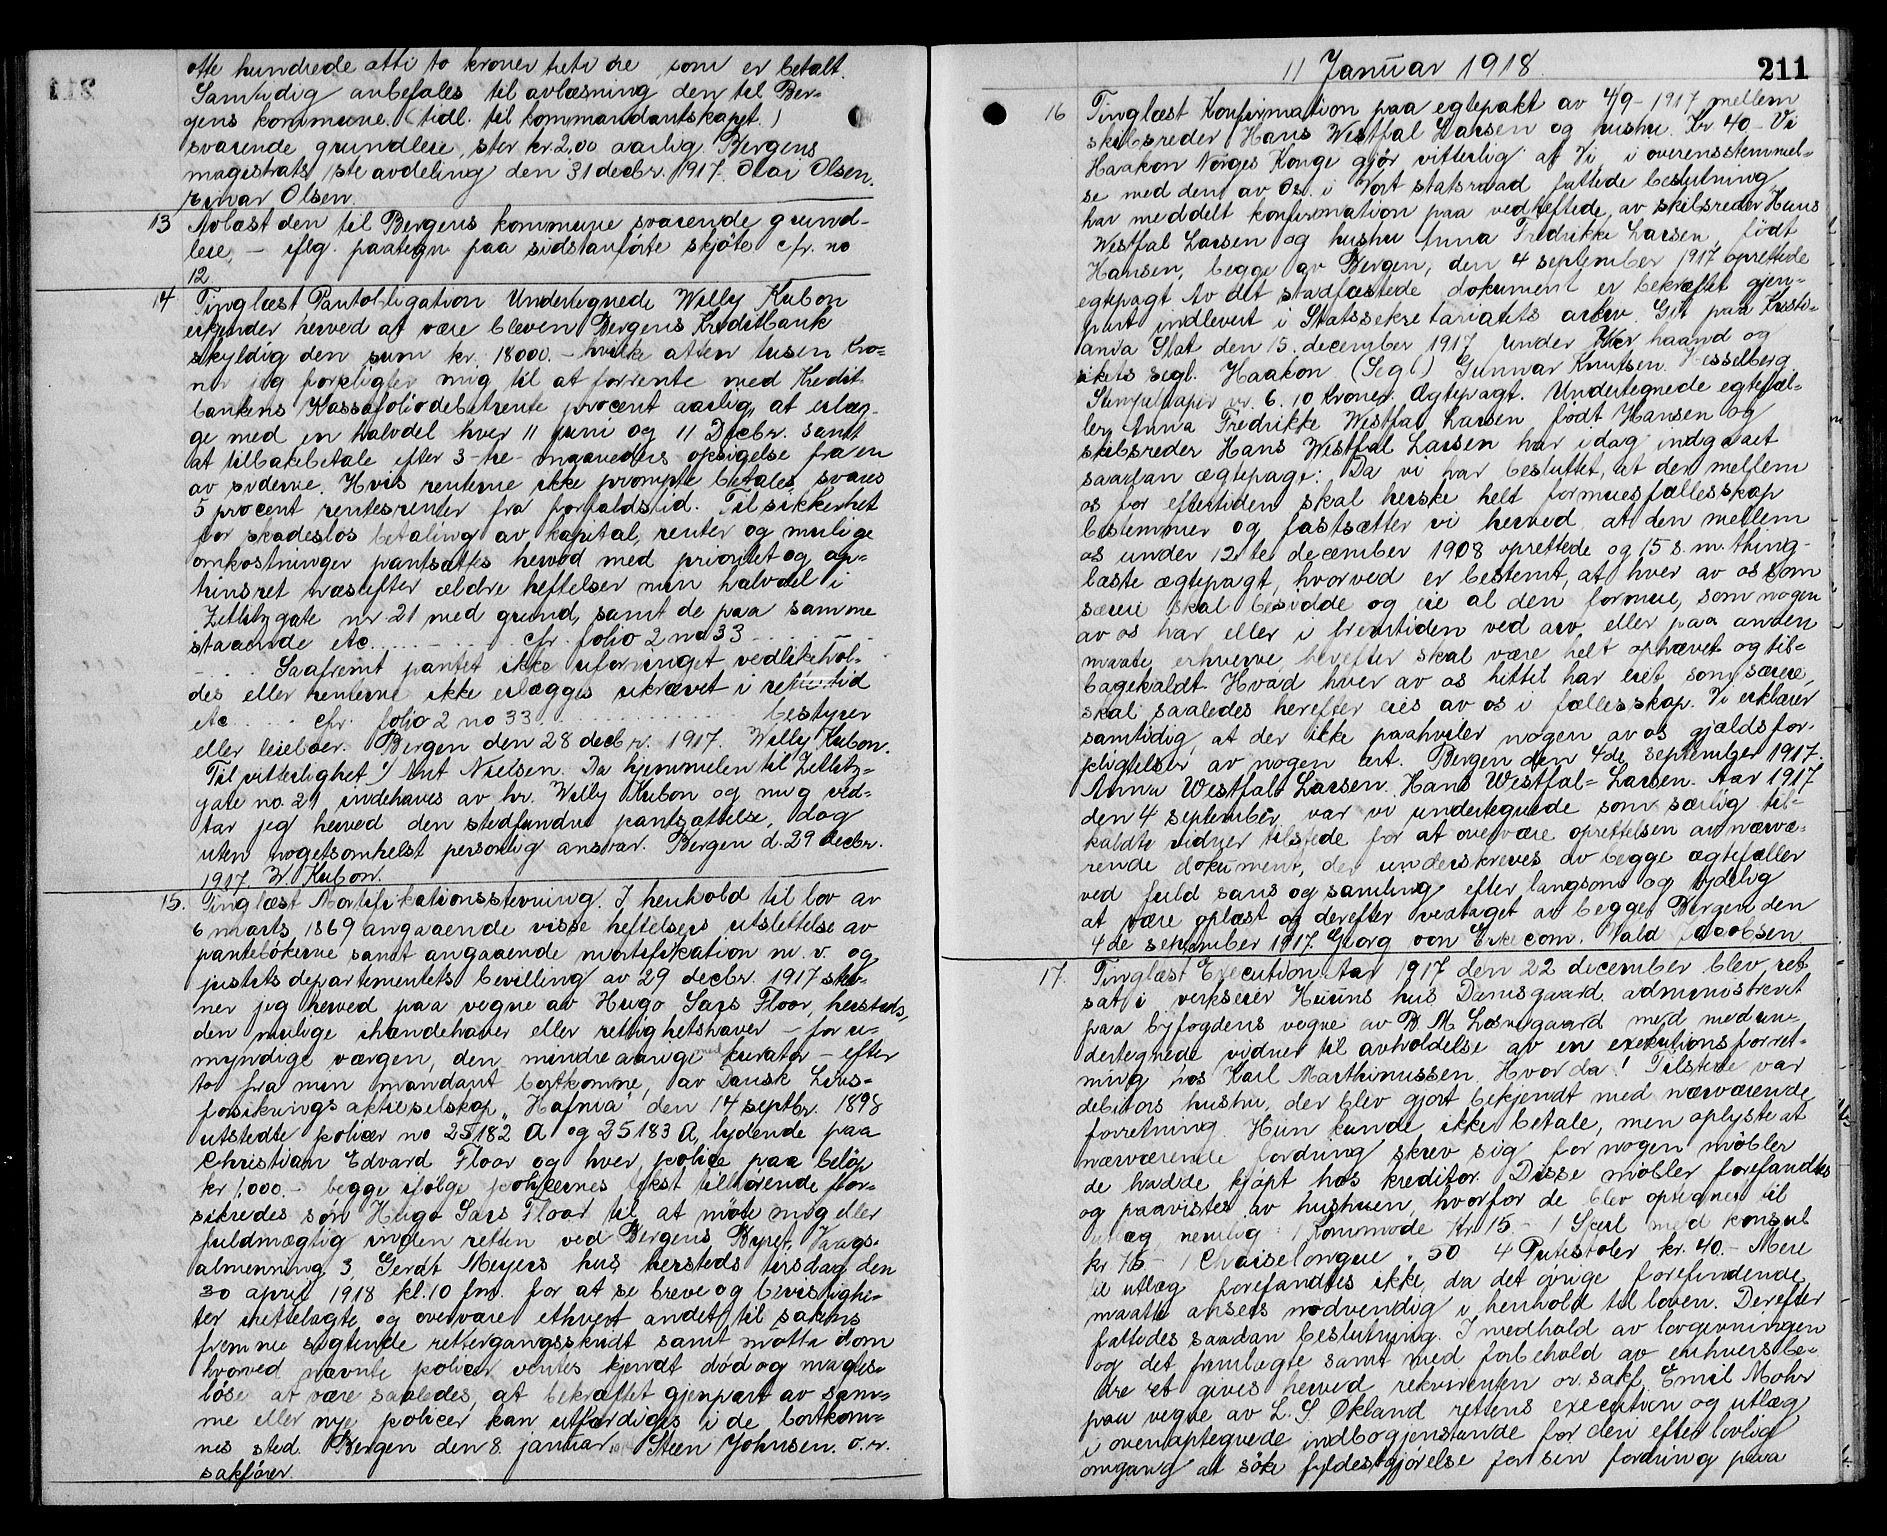 otte hundrede otti to kroner treti øre, som er betalt.
Samtidig anbefales til avlæsning den til Ber-
gens kommune (tidl. til kommandantskapet)
svarende grundleie, stor kr 2,00 aarlig. Bergens
magistrats 1ste avdeling den 31 decbr. 1917. Olai Olsen.
Einar Olsen.
13 Avlæst den til Bergens kommune svarende grund-
leie, – iflg. paategn. paa sidstanførte skjøte cfr. no
12
14 Tinglæst Pantobligation Undertegnede Willy Kubon
erkjender herved at være bleven Bergens Kreditbank
skyldig den sum kr. 18000. – hvilke atten tusen kro-
ner jeg forpligter mig til at forrente med Kredit
bankens Kassafoliodebetrente procent aarlig, at erlæg-
ge med en halvdel hver 11 juni og 11 Decbr. samt
at tilbakebetale efter 3-tre- maaneders opsigelse fra en
av siderne. Hvis renterne ikke prompte betales svares
5 procent rentesrenter fra forfaldstid. Til sikkerhet
for skadesløs betaling av kapital, renter og mulige
omkostninger pantsættes herved med prioritet og op-
trinsret næstefter ældre heftelser min halvdel i
Zetlitzgate nr 21 med grund, samt de paa samme
staaende etc. . . . . . . cfr. folio 2 no 33 . . . . .
. . . . . Saafremt pantet ikke uforringet vedlikehol-
des eller renterne ikke erlægges ukrævet i rette tid
etc. . . . cfr. folio 2 no 33 . . . . . . . . . . bestyrer
eller leieboer. Bergen den 28 decbr. 1917. Willy Kubon.
Til vitterlighet: Aut Nielsen. Da hjemmelen til Zetlitz-
gate no. 21 indehaves av hr. Willy Kubon og mig ved-
tar jeg herved den stedfundne pantsættelse, dog
uten nogetsomhelst personlig ansvar. Bergen d. 29 decbr.
1917. W. Kubon.
15. Tinglæst Mortifikationsstevning. I henhold til lov av
6 marts 1869 angaaende visse heftelsers utslettelse av
pantebökerne samt angaaende mortifikation m. v. og
justitsdepartementets bevilling av 29 decbr. 1917 stev-
ner jeg herved paa vegne av Hugo Sars Floor, hersteds,
den mulige ihændehaver eller rettighetshaver – for u-
myndige værgen, den mindreaarige med kurator – efter
to fra min mandant bortkomne, av Dansk Livs-
forsikringsaktieselskap „Hafnia" den 14 septbr. 1898
utstedte policer no 25182 A og 25183 A, lydende paa
Christian Edvard Floor og hver police paa beløp
kr 1,000. – begge ifölge policernes tekst tilhörende for-
sikredes søn Hugo Sars Floor til at møte mig eller
fuldmægtig inden retten ved Bergens Byret, Vaags-
almenning 3, Gerdt Meyers hus hersteds tirsdag den
30 april 1918 kl. 10 fm. for at se breve og bevisligh-
ter irettelagte og overvære ethvert andet til sakens
fremme sigtende rettergangsskridt samt motta dom
hvorved nævnte policer ventes kjendt død og magtes-
löse at være saaledes, at bekræftet gjenpart av sam-
me eller nye policer kan utfærdiges i de bortkom-
nes sted. Bergen den 8. januar 1918 Steen Johnsen. o.r.
sakfører.
11 Januar 1918
211
16 Tinglæst Konfirmation paa egtepakt av 4/9-1917 mellem
skibsreder Hans Westfal Larsen og hustru. Kr. 40 – Vi
Haakon Norges Konge gjør vitterlig at Vi i overensstemmel-
se med den av Os i Vort statsraad fattede beslutning,
har meddelt konfirmation paa vedheftede, av skibsreder Hans
Westfal Larsen og hustru Anna Fredrikke Larsen, født
Hansen, begge av Bergen, den 4 september 1917 oprettede
egtepagt. Av det stadfæstede dokument er bekræftet gjen-
part indlevert i Statssekretariatets arkiv. Git paa Kristi-
ania Slot den 15. december 1917 under Vor haand og
rikets segl. Haakon (Segl) Gunnar Knutsen. Hesselberg
Stempelpapir nr. 6. 10 kroner. Ægtepagt. Undertegnede egtefæl-
ler Anna Fredrikke Westfal Larsen født Hansen og
skibsreder Hans Westfal Larsen har idag indgaaet
saadan ægtepagt: Da vi har besluttet, at der mellem
os for eftertiden skal herske helt formuesfællesskap
bestemmer og fastsætter vi herved, at den mellem
os under 12te december 1908 oprettede og 15 s. m. thing-
læste ægtepagt, hvorved er bestemt, at hver av os som
særeie skal besidde og eie al den formue, som nogen
av os har eller i fremtiden ved arv, eller paa anden
maate erhverve, herefter skal være helt ophævet og til-
bagekaldt. Hvad hver av os hittil har eiet som særeie,
skal saaledes herefter eies av os i fællesskap. Vi erklærer
samtidig, at der ikke paahviler nogen av os gjældsfor-
pligtelser av nogen art. Bergen den 4de september 1917.
Anna Westfal Larsen. Hans Westfal-Larsen. Aar 1917
den 4 september var vi undertegnede som særlig til-
kaldte vidner tilstede for at overvære oprettelsen av nærvæ-
rende dokument, der underskreves av begge ægtefæller
ved fuld sans og samling efter langsom og tydelig
at være oplæst og derefter vedtaget av begge. Bergen den
4de september 1917. Georg von Erpecom. Vald Jacobsen
17. Tinglæst Execution Aar 1917 den 22 december blev ret
sat i verkseier Huuns hus Damsgaard, administreret
paa byfogdens vegne av B. M. Losnegaard med med un-
dertegnede vidner til avholdelse av en exekutionsforret-
ning hos Karl Marthinussen. Hvor da! Tilstede var
debitors hustru, der blev gjort bekjendt med nærværende
forretning. Hun kunde ikke betale, men oplyste at
nærværende fordring skrev sig for nogen møbler
de hadde kjöpt hos kreditor. Disse møbler forefandtes
og paavistes av hustruen, hvorfor de blev optegnet til
utlæg nemlig: 1 Kommode Kr. 15 – 1 Speil med konsol
kr 15 – 1 Chaiselongue „ 50 4 Rutestoler kr. 40. – Mere
til utlæg forefandtes ikke, da det övrige forefindende
maatte ansees nødvendig i henhold til loven. Derefter
fattedes saadan beslutning. I medhold av lovgivningen
og det fremlagte samt med forbehold av enhvers be-
dre ret gives herved rekvirenten or. sakf. Emil Mohr
paa vegne av L. S. Økland rettens execution og utlæg
i ovenoptegnede indbogjenstande for den efter lovlig
omgang at söke fyldestgjørelse for sin fordring paa